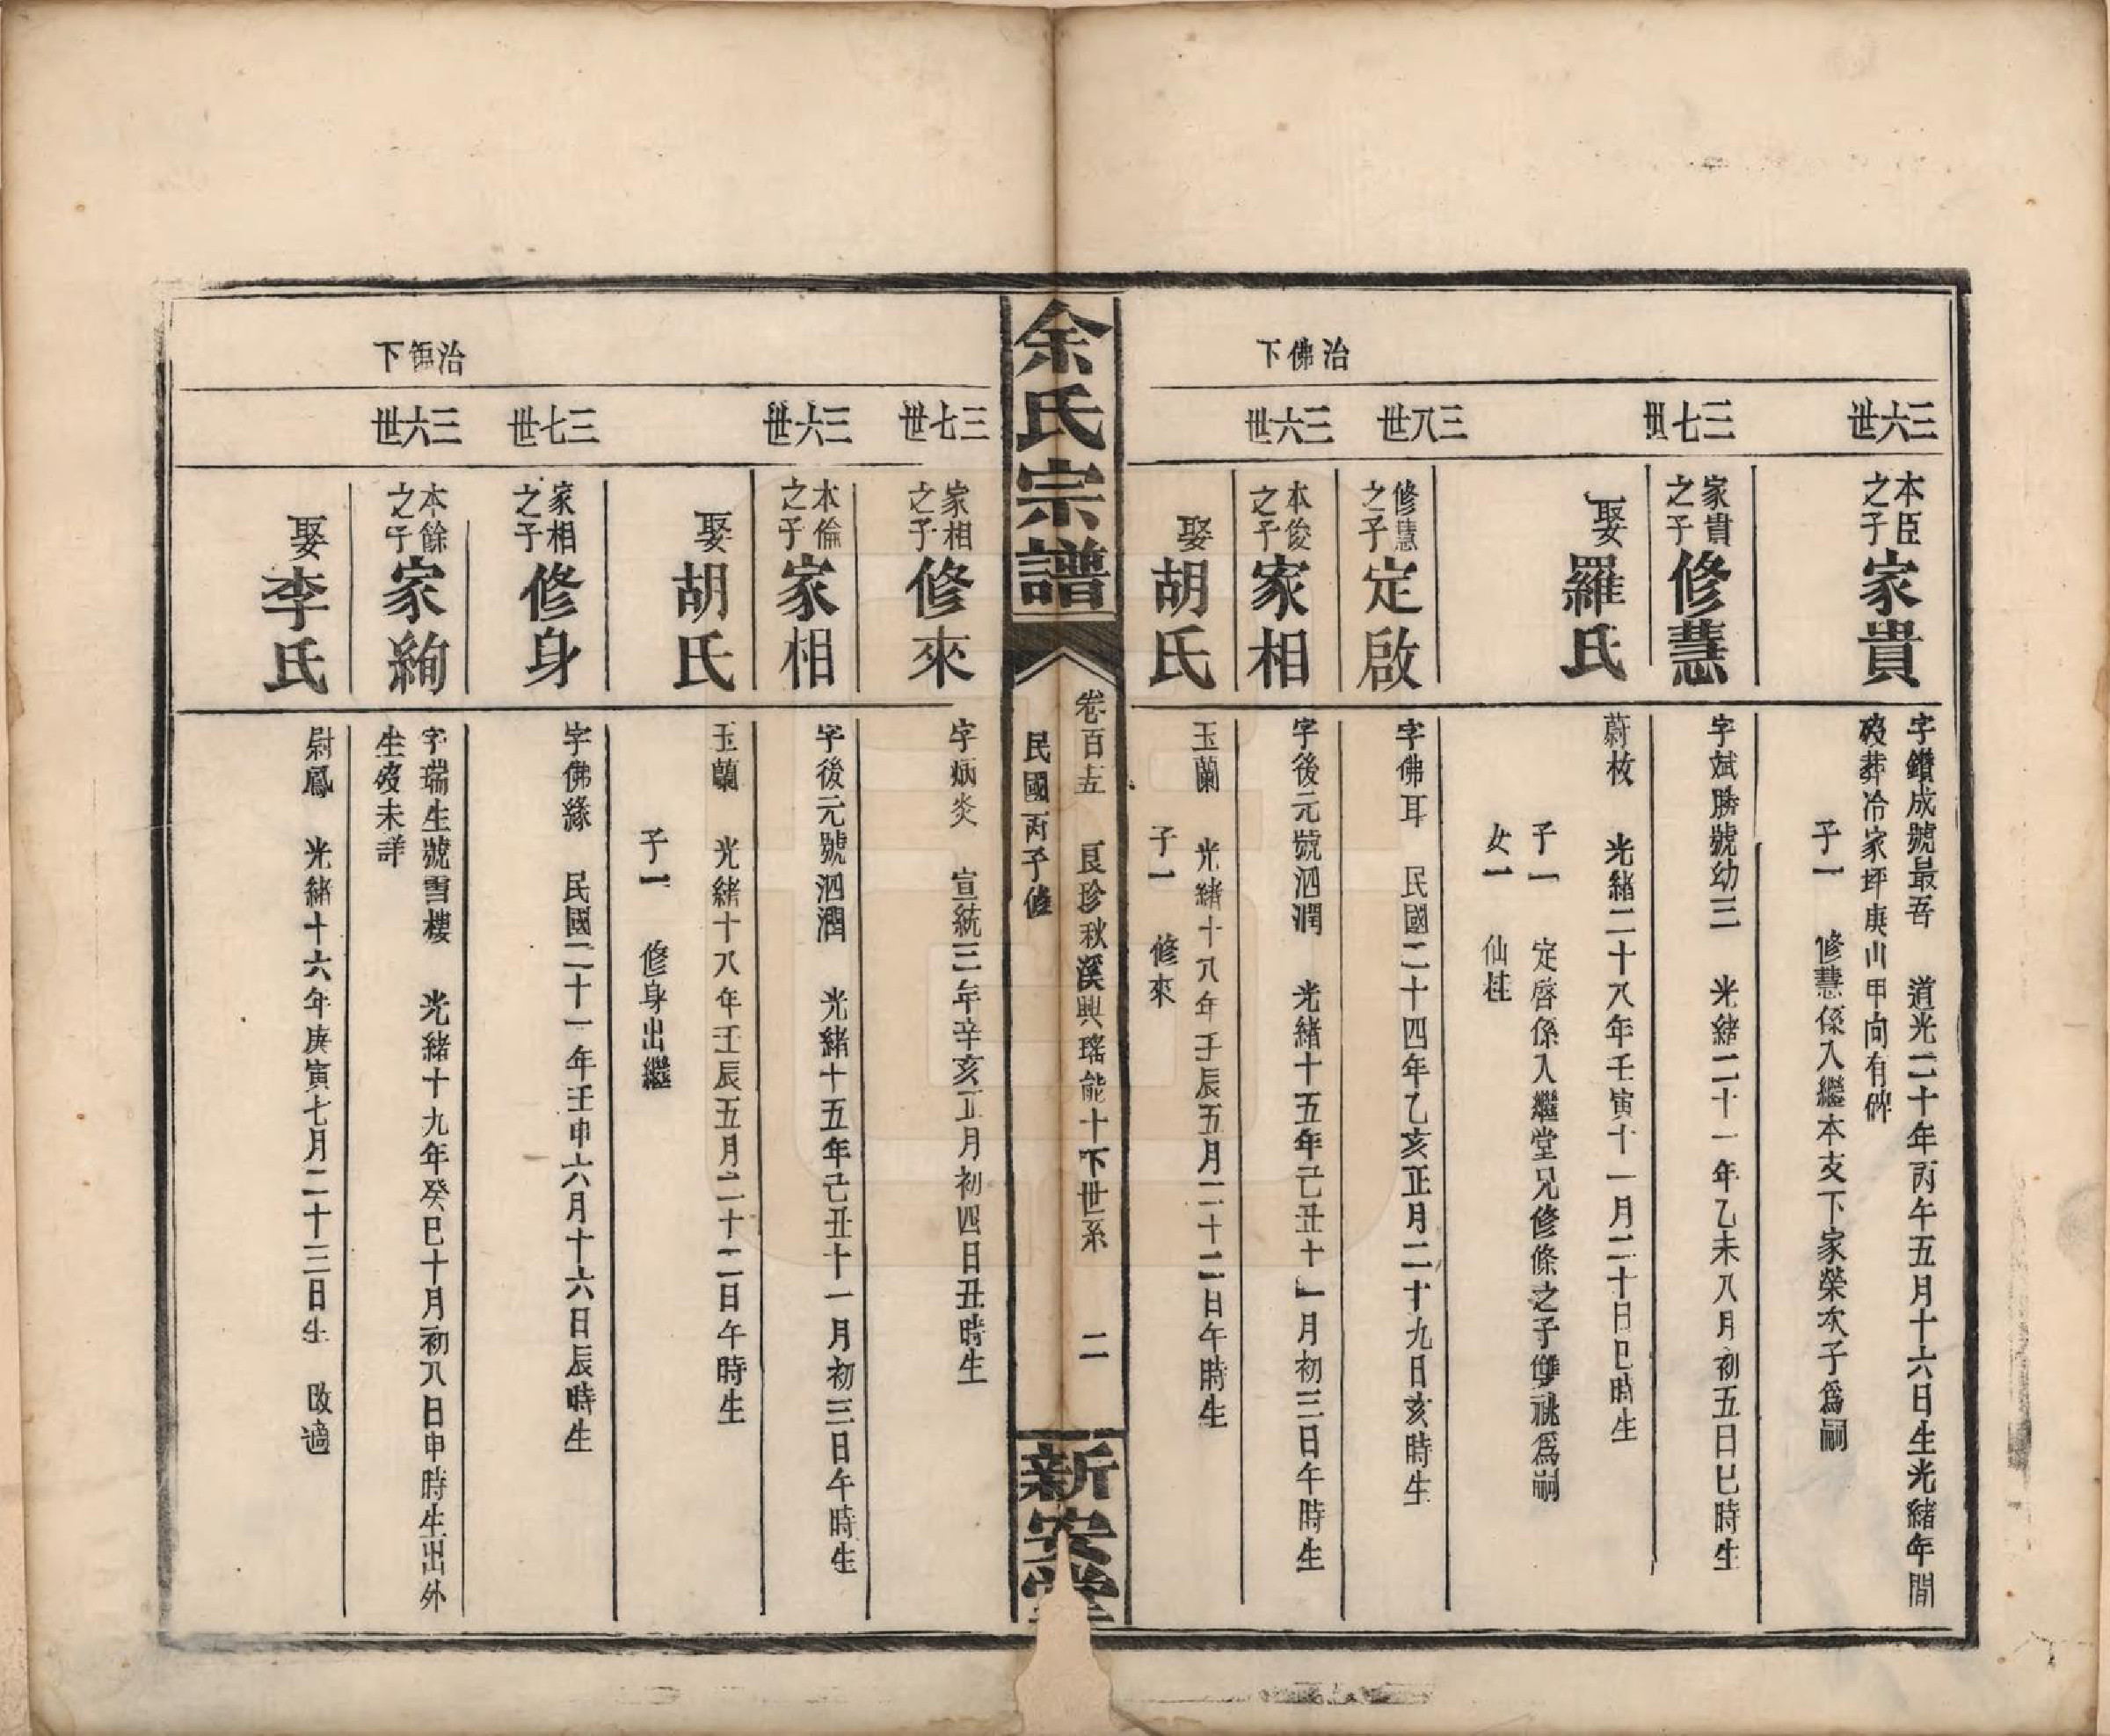 治佛下
三六世
本臣之子
家貴
字鑽成號最吾　道光二十年丙午五月十六日生光緒年間
歿葬冷家坪庚山甲向有碑
子一　修慧係入繼本支下家榮次子爲嗣
三七世
家貴之子
修慧
字斌勝號幼三　光緒二十一年乙未八月初五日巳時生
娶羅氏
蔚枚　光緒二十八年壬寅十一月二十日巳時生
子一　定啓係入繼堂兄修條之子雙祧爲嗣
女一　仙桂
三八世
修慧之子
定啟
字佛耳　民國二十四年乙亥正月二十九日亥時生
三六世
本俊之子
家相
字後元號泗潤　光緒十五年己丑十一月初三日午時生
娶胡氏
玉蘭　光緒十八年壬辰五月二十二日午時生
子一　修來
余氏宗譜
卷百十五　良珍秋溪興瑤能十下世系　二
民國丙子修
新安堂
三七世
家相之子
修來
字炳炎　宣統三年辛亥正月初四日丑時生
三六世
本倫之子
家相
字後元號泗潤　光緒十五年己丑十一月初三日午時生
娶胡氏
玉蘭　光緒十八年壬辰五月二十二日午時生
子一　修身出繼
三七世
家相之子
修身
字佛緣　民國二十一年壬申六月十六日辰時生
治下
三六世
本餘之子
家絢
字瑞生號雪樓　光緒十九年癸巳十月初八日申時生出外
生歿未詳
娶李氏
尉鳳　光緒十六年庚寅七月二十三日生　改適